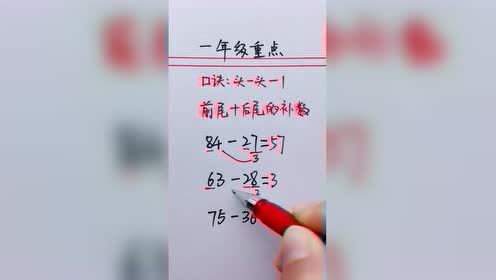 一年级重点
口诀:头一头一1
前尾十后尾的补数
84-27=57
3
63-28=3
2
75-36